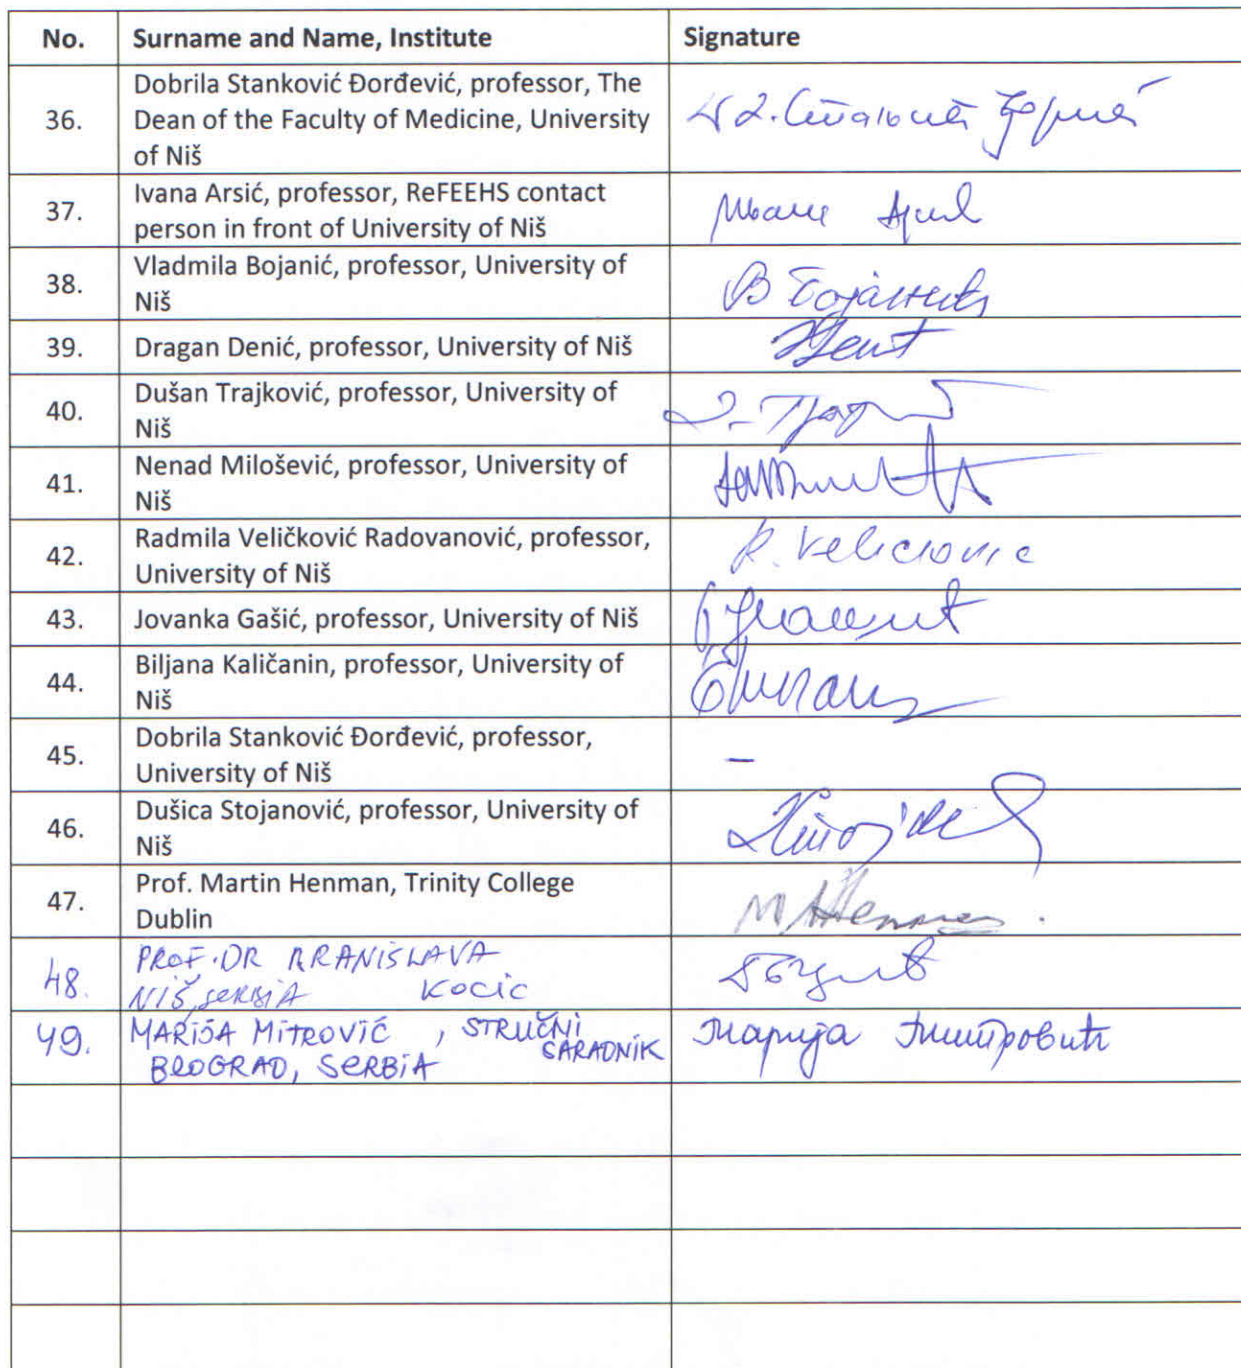 No. Surname and Name, Institute Signature
36. Dobrila Stanković Đorđević, professor, The
Dean of the Faculty of Medicine, University
of Niš
37. Ivana Arsić, professor, ReFEEHS contact
person in front of University of Niš
38. Vladmila Bojanić, professor, University of
Niš
В Бојанић
39. Dragan Denić, professor, University of Niš
40. Dušan Trajković, professor, University of
Niš
41. Nenad Milošević, professor, University of
Niš
42. Radmila Veličković Radovanović, professor,
University of Niš
R. Velickovic
43. Jovanka Gašić, professor, University of Niš
44. Biljana Kaličanin, professor, University of
Niš
45. Dobrila Stanković Đorđević, professor,
University of Niš
–
46. Dušica Stojanović, professor, University of
Niš
47. Prof. Martin Henman, Trinity College
Dublin
M Henman.
48. PROF. DR BRANISLAVA
NIŠ, SERBIA KOCIC
49. MARIJA MITROVIĆ, STRUČNI
SARADNIK
BEOGRAD, SERBIA
Марија Митровић